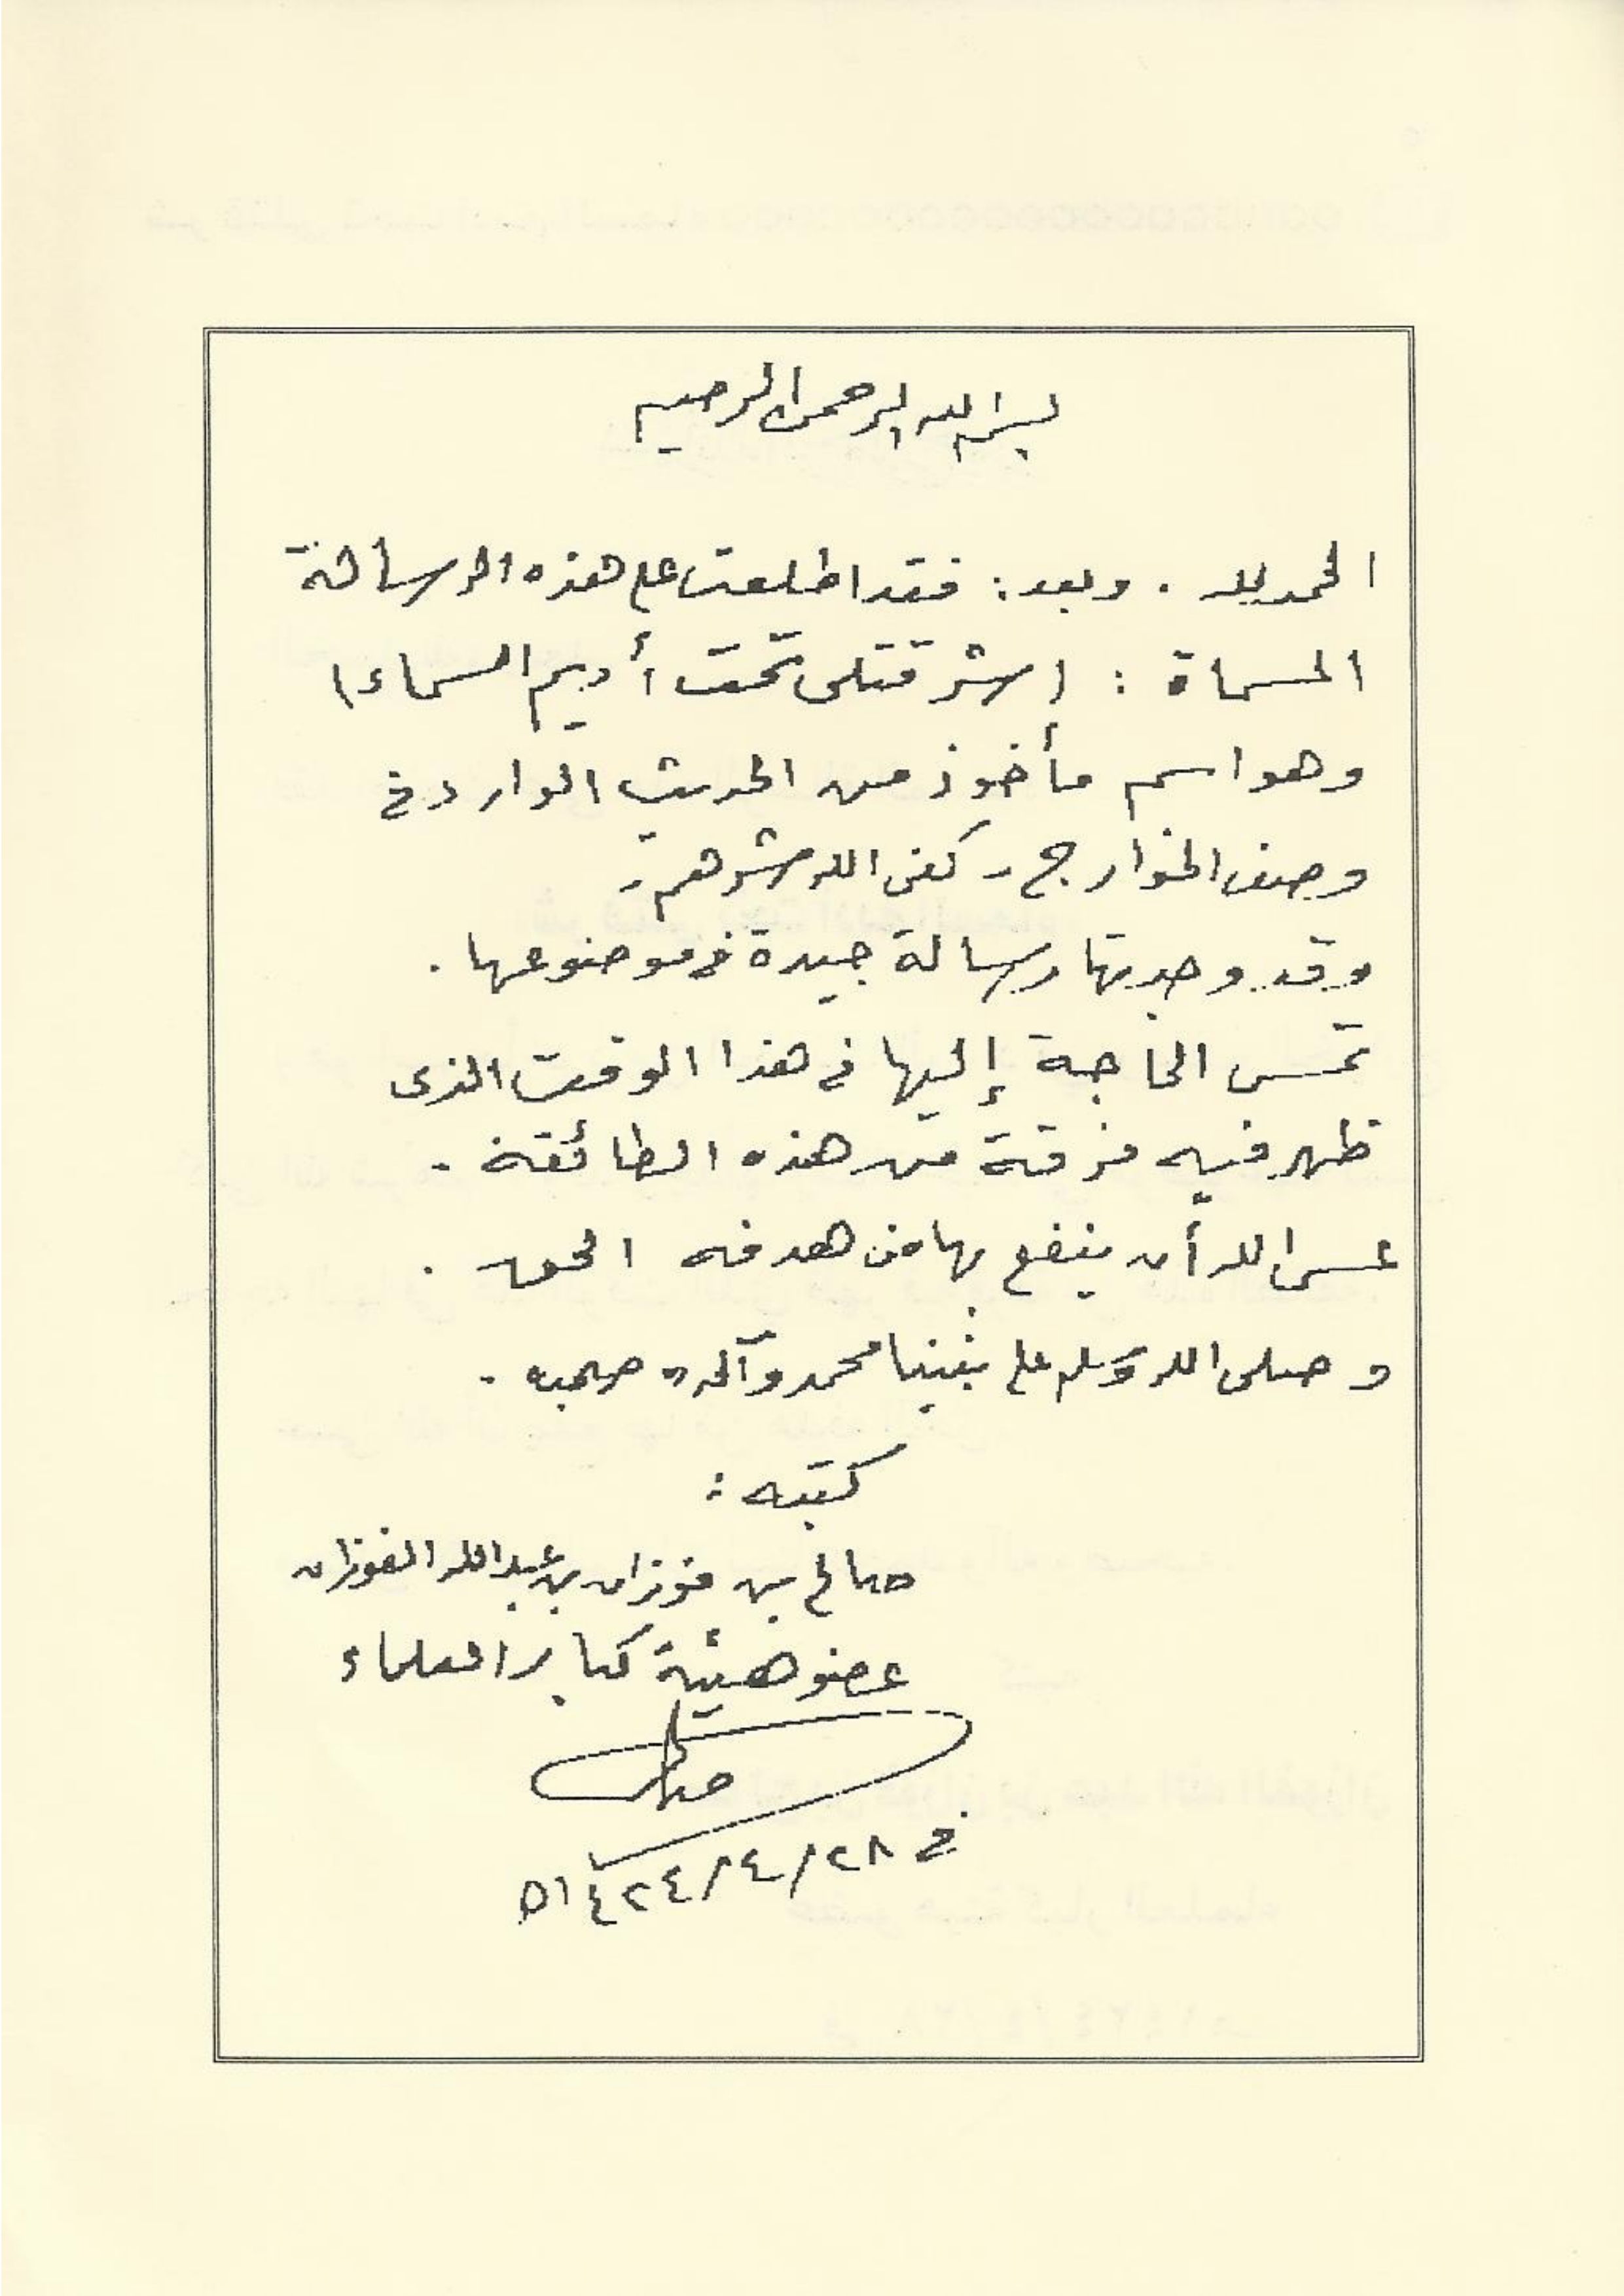 بسم الله الرحمن الرحيم
الحمد لله . وبعد : فقد اطلعت على هذه الرسالة
المسماة : ( شر قتلى تحت أديم السماء )
وهو اسم مأخوذ من الحديث الوارد في
وصف الخوارج - كفى الله شرهم -
وقد وجدتها رسالة جيدة في موضوعها .
تمس الحاجة إليها في هذا الوقت الذى
ظهر فيه فرقة من هذه الطائفة .
عسى الله أن ينفع بها من هدفه الحق .
وصلى الله وسلم على نبينا محمد وآله وصحبه .
كتبه :
صالح بن فوزان بن عبدالله الفوزان
عضو هيئة كبار العلماء
صالح
في ٢٨/٤/١٤٢٤ه